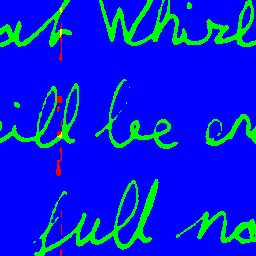 at Whirl
ill be en
full no